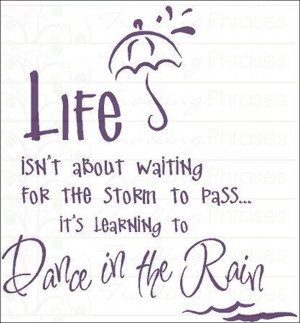 Life
isn't about waiting
for the storm to pass...
it's learning to
Dance in the Rain